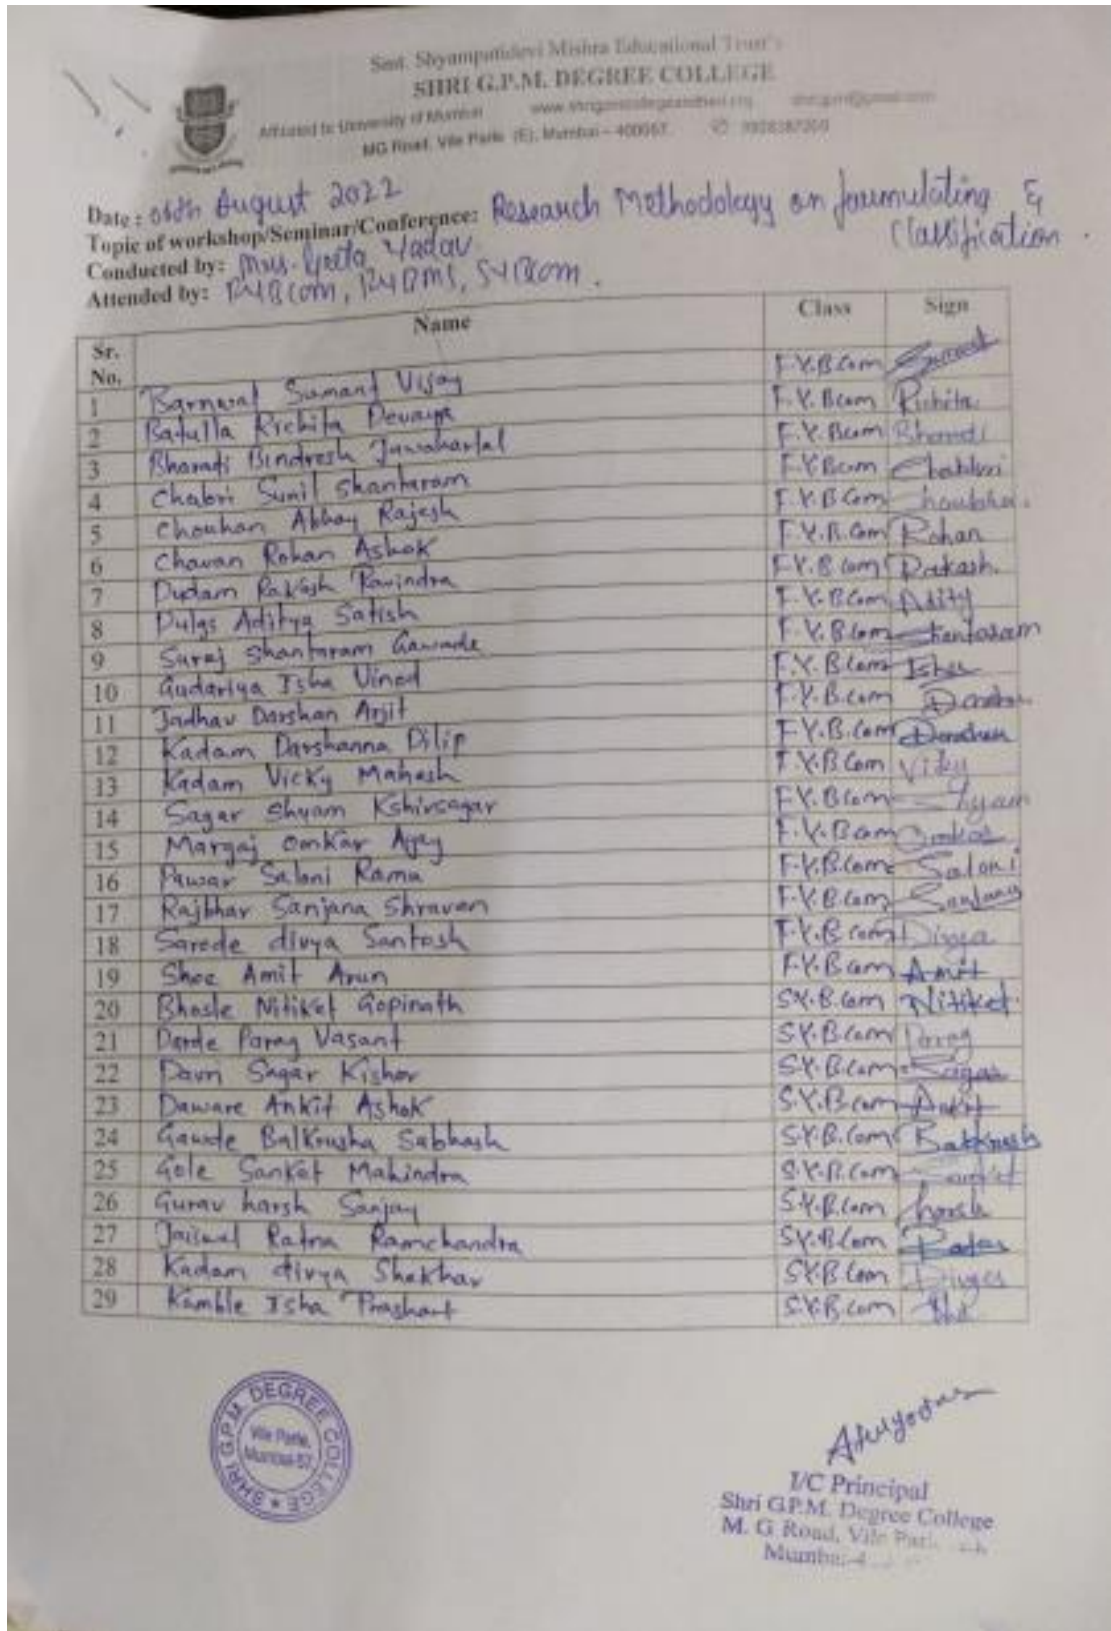 Smt. Shyampatidevi Mishra Educational Trust's
SHRI G.P.M. DEGREE COLLEGE
Affiliated to University of Mumbai
MG Road, Vile Parle (E), Mumbai – 400057.
Date : August 2022
Topic of workshop/Seminar/Conference: Research Methodology on formulating &
Classification.
Conducted by: Mrs. Geeta Yadav
Attended by: FYBCom, FYBMS, SYBCom.
Sr. No. Name Class Sign
1 Barnwal Sumant Vijay F.Y.B.Com Sumant
2 Batulla Richita Devaiya F.Y.Bcom Richita
3 Bharati Bindresh Jawaharlal F.Y.Bcom Bharati
4 Chabri Sunil Shantaram F.Y.Bcom
5 Chouhan Abhay Rajesh F.Y.B.Com
6 Chavan Rohan Ashok F.Y.B.Com Rohan
7 Dudam Rakash Ravindra F.Y.B.com Rakash
8 Dulgs Aditya Satish F.Y.B.Com Adity
9 Suraj Shantaram Gawade F.Y.B.Com Shantaram
10 Gudariya Isha Vinod F.Y.B.Com Isha
11 Jadhav Darshan Arjit F.Y.B.com
12 Kadam Darshanna Dilip F.Y.B.Com
13 Kadam Vicky Mahesh F.Y.B.Com Vicky
14 Sagar Shyam Kshirsagar F.Y.B.Com Shyam
15 Margaj Omkar Ajay F.Y.B.com Omkar
16 Pawar Saloni Rama F.Y.B.Com Saloni
17 Rajbhar Sanjana Shravan F.Y.B.Com
18 Sarode divya Santosh F.Y.B.com Divya
19 Shee Amit Arun F.Y.B.com Amit
20 Bhosle Nitiket Gopinath S.Y.B.Com Nitiket
21 Darde Parag Vasant S.Y.B.Com Parag
22 Davn Sagar Kishor S.Y.B.Com Sagar
23 Daware Ankit Ashok S.Y.B.Com Ankit
24 Gawde Balkrusha Sabhash S.Y.B.Com
25 Gole Sanket Mahindra S.Y.B.Com Sanket
26 Gurav harsh Sanjay S.Y.B.Com harsh
27 Jaiswal Ratna Ramchandra S.Y.B.Com
28 Kadam divya Shekhar S.Y.B.Com
29 Kamble Isha Prashant S.Y.B.com
SHRI G.P.M. DEGREE COLLEGE
Vile Parle,
Mumbai-57.
I/C Principal
Shri G.P.M. Degree College
M. G. Road, Vile
Mumbai-4